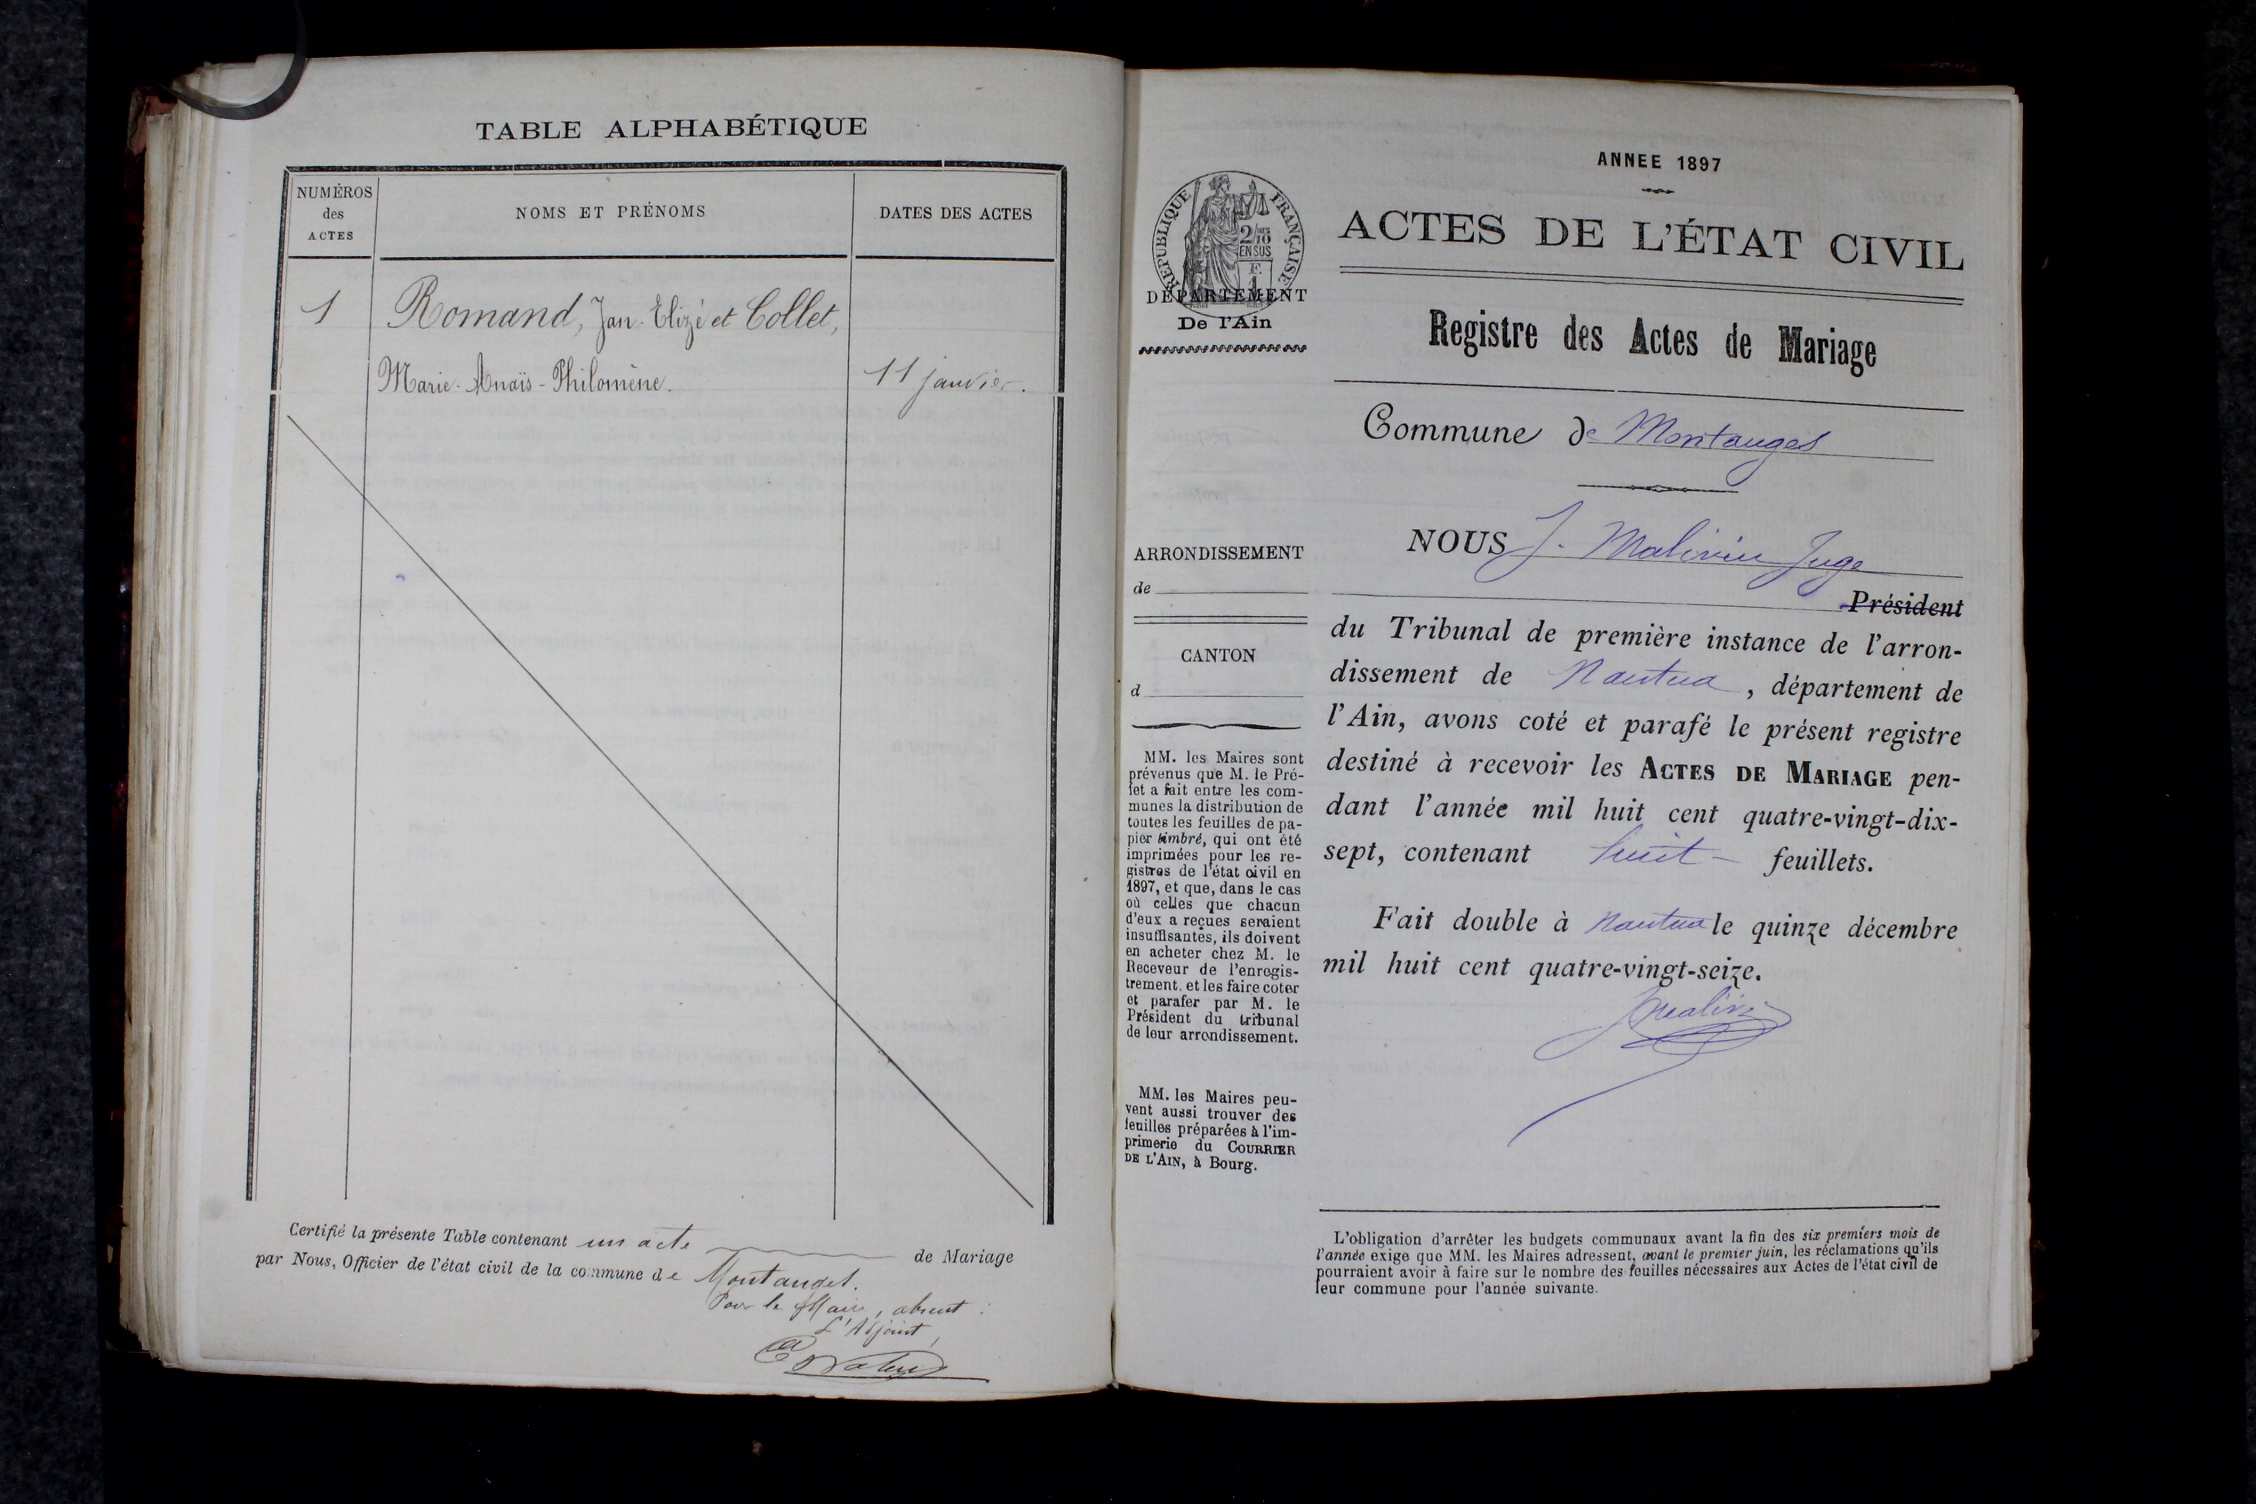 TABLE ALPHABÉTIQUE
NUMÉROS
des
ACTES
NOMS ET PRÉNOMS
DATES DES ACTES
1
Romand, Jan-Elizé et Collet,
Marie-Anaïs-Philomène.
11 janvier.
Certifié la présente Table contenant un acte de Mariage
par Nous, Officier de l'état civil de la commune de Montanges.
Pour le Maire, absent :
L'Adjoint,
ANNEE 1897
RÉPUBLIQUE FRANÇAISE
2/10
EN SUS
DÉPARTEMENT
De l'Ain
ACTES DE L'ÉTAT CIVIL
Registre des Actes de Mariage
Commune de Montanges
ARRONDISSEMENT
de
CANTON
d
MM. les Maires sont
prévenus que M. le Pré-
fet a fait entre les com-
munes la distribution de
toutes les feuilles de pa-
pier timbré, qui ont été
imprimées pour les re-
gistres de l'état civil en
1897, et que, dans le cas
où celles que chacun
d'eux a reçues seraient
insuffisantes, ils doivent
en acheter chez M. le
Receveur de l'enregis-
trement. et les faire coter
et parafer par M. le
Président du tribunal
de leur arrondissement.
MM. les Maires peu-
vent aussi trouver des
feuilles préparées à l'im-
primerie du COURRIER
DE L'AIN, à Bourg.
NOUS J. Malivin Juge
Président
du Tribunal de première instance de l'arron-
dissement de Nantua, département de
l'Ain, avons coté et parafé le présent registre
destiné à recevoir les ACTES DE MARIAGE pen-
dant l'année mil huit cent quatre-vingt-dix-
sept, contenant huit feuillets.
Fait double à Nantua le quinze décembre
mil huit cent quatre-vingt-seize.
L'obligation d'arrêter les budgets communaux avant la fin des six premiers mois de
l'année exige que MM. les Maires adressent, avant le premier juin, les réclamations qu'ils
pourraient avoir à faire sur le nombre des feuilles nécessaires aux Actes de l'état civil de
leur commune pour l'année suivante.